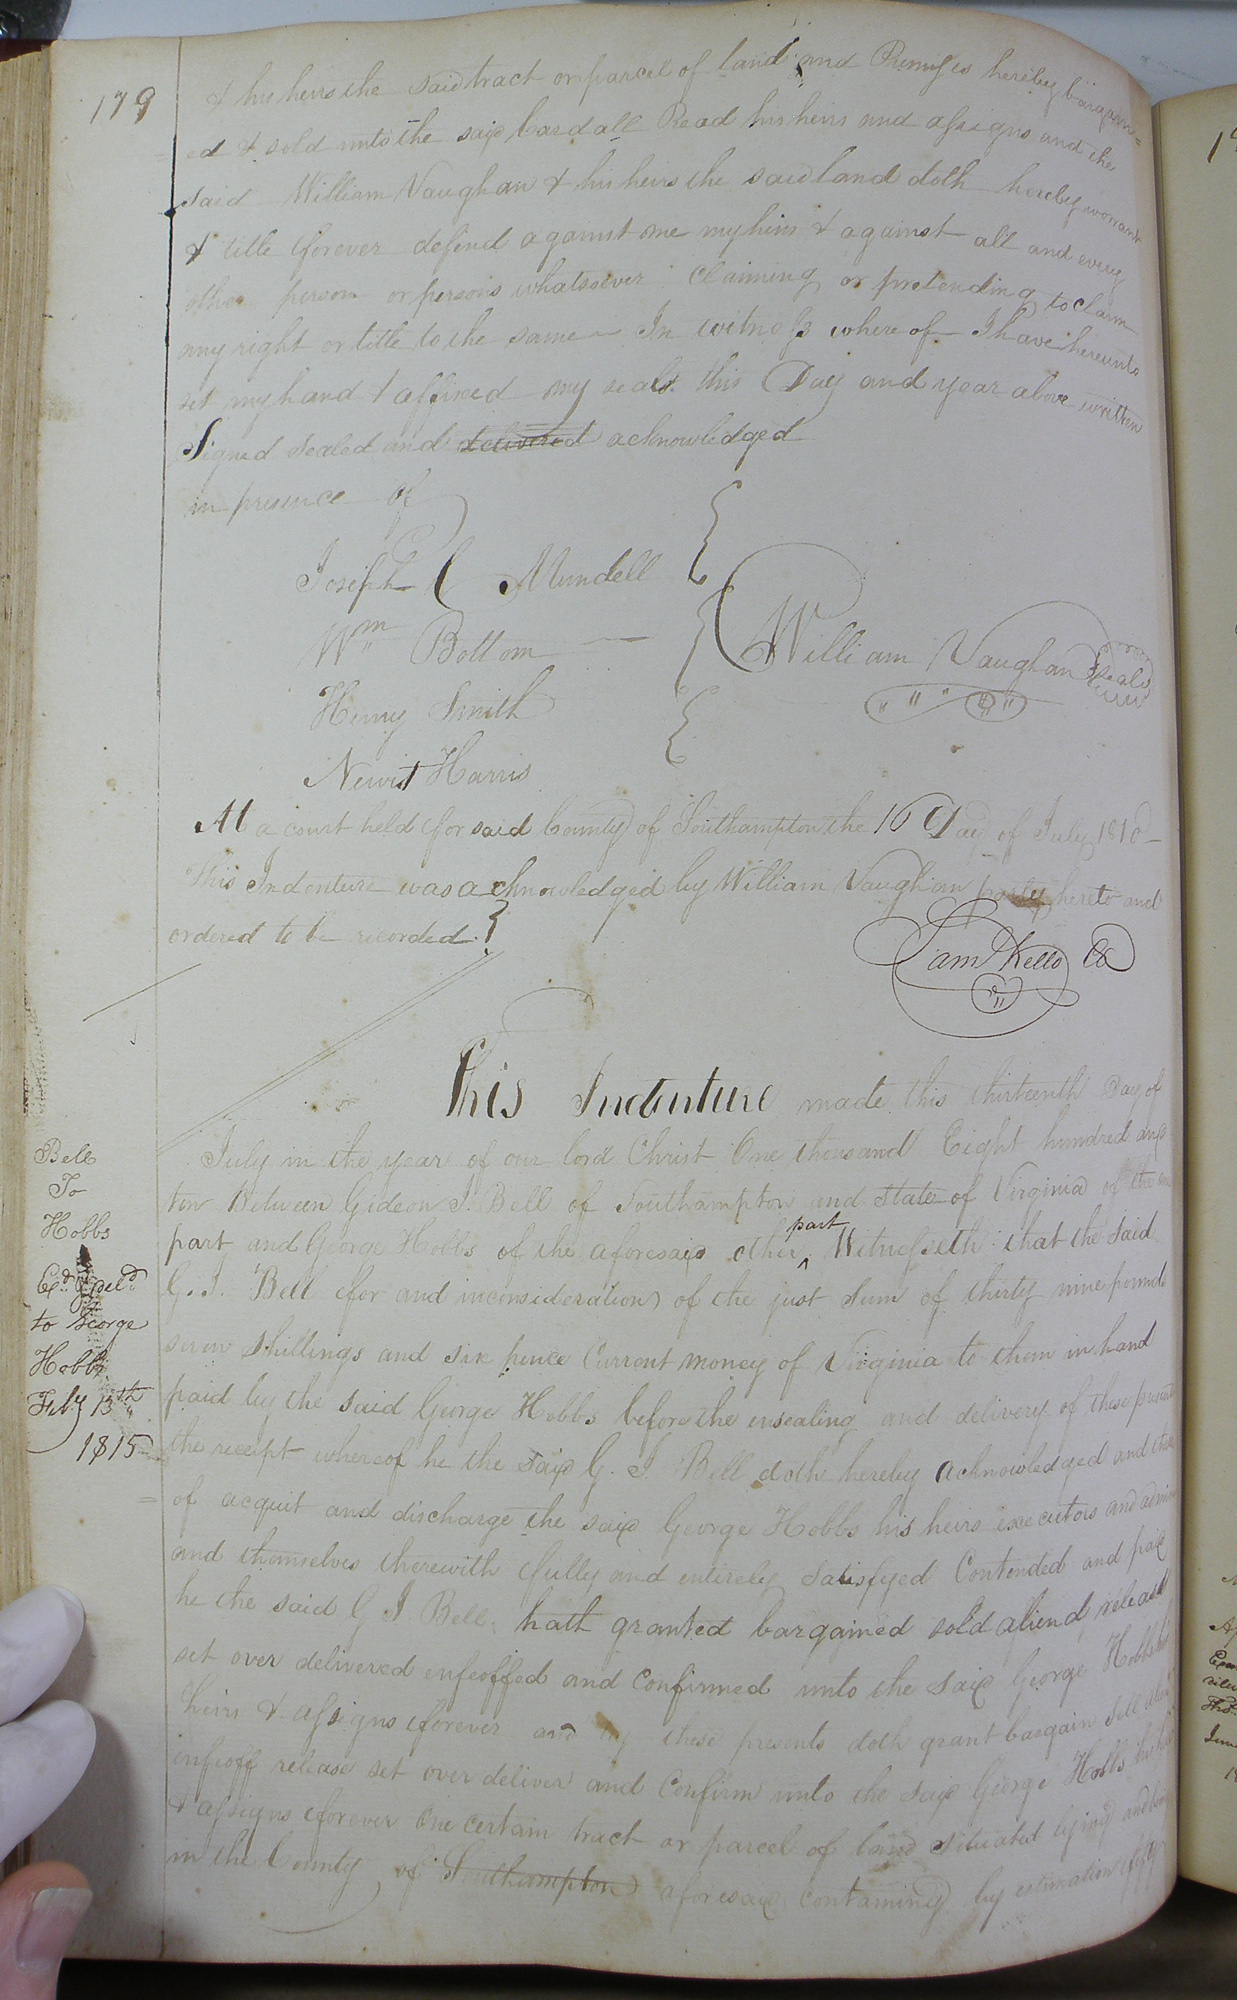 179
& his heirs the said tract or parcel of land and Premises hereby bargain=
=ed & sold unto the said Cardall Read his heirs and assigns and the
said William Vaughan & his heirs the said land doth hereby warrant
& title forever defend against me my heirs & against all and every
other person or persons whatsoever claiming or pretending to claim
any right or title to the same In witness where of I have hereunto
set my hand & affixed my seal this Day and year above written
Signed sealed and delivered acknowledged
in presence of
Joseph C Mundell
Wm Bottom
William Vaughan Seal
Henry Smith
Newit Harris
At a court held for said County of Southampton the 16 Day of July 1810
This Indenture was acknowledged by William Vaughan party hereto and
ordered to be recorded
Sam Kello CC
This Indenture made this thirteenth Day of
July in the year of our lord Christ One thousand Eight hundred and
ten Between Gideon J. Bell of Southampton and State of Virginia of the one
part and George Hobbs of the aforesaid other part Witnesseth that the said
G. J. Bell for and in consideration of the just Sum of thirty nine pounds
seven Shillings and six pence Current money of Virginia to them in hand
paid by the said George Hobbs before the ensealing and delivery of these presents
the receipt whereof he the said G. J. Bell doth hereby acknowledged and there
=of acquit and discharge the said George Hobbs his heirs executors and admin
and themselves therewith fully and entirely Satisfyed Contended and paid
he the said G J Bell hath granted bargained sold aliend release
set over delivered enfeoffed and Confirmed unto the said George Hobbs his
heirs & assigns forever and by these presents doth grant bargain Sell alien
infeoff release set over deliver and Confirm unto the said George Hobbs his heirs
& assigns forever One certain tract or parcel of land Situated lying and being
in the County of Southampton aforesaid containing by estimation fifty
Bell
To
Hobbs
Exd. & deld
to George
Hobbs
Feby 13th
1815